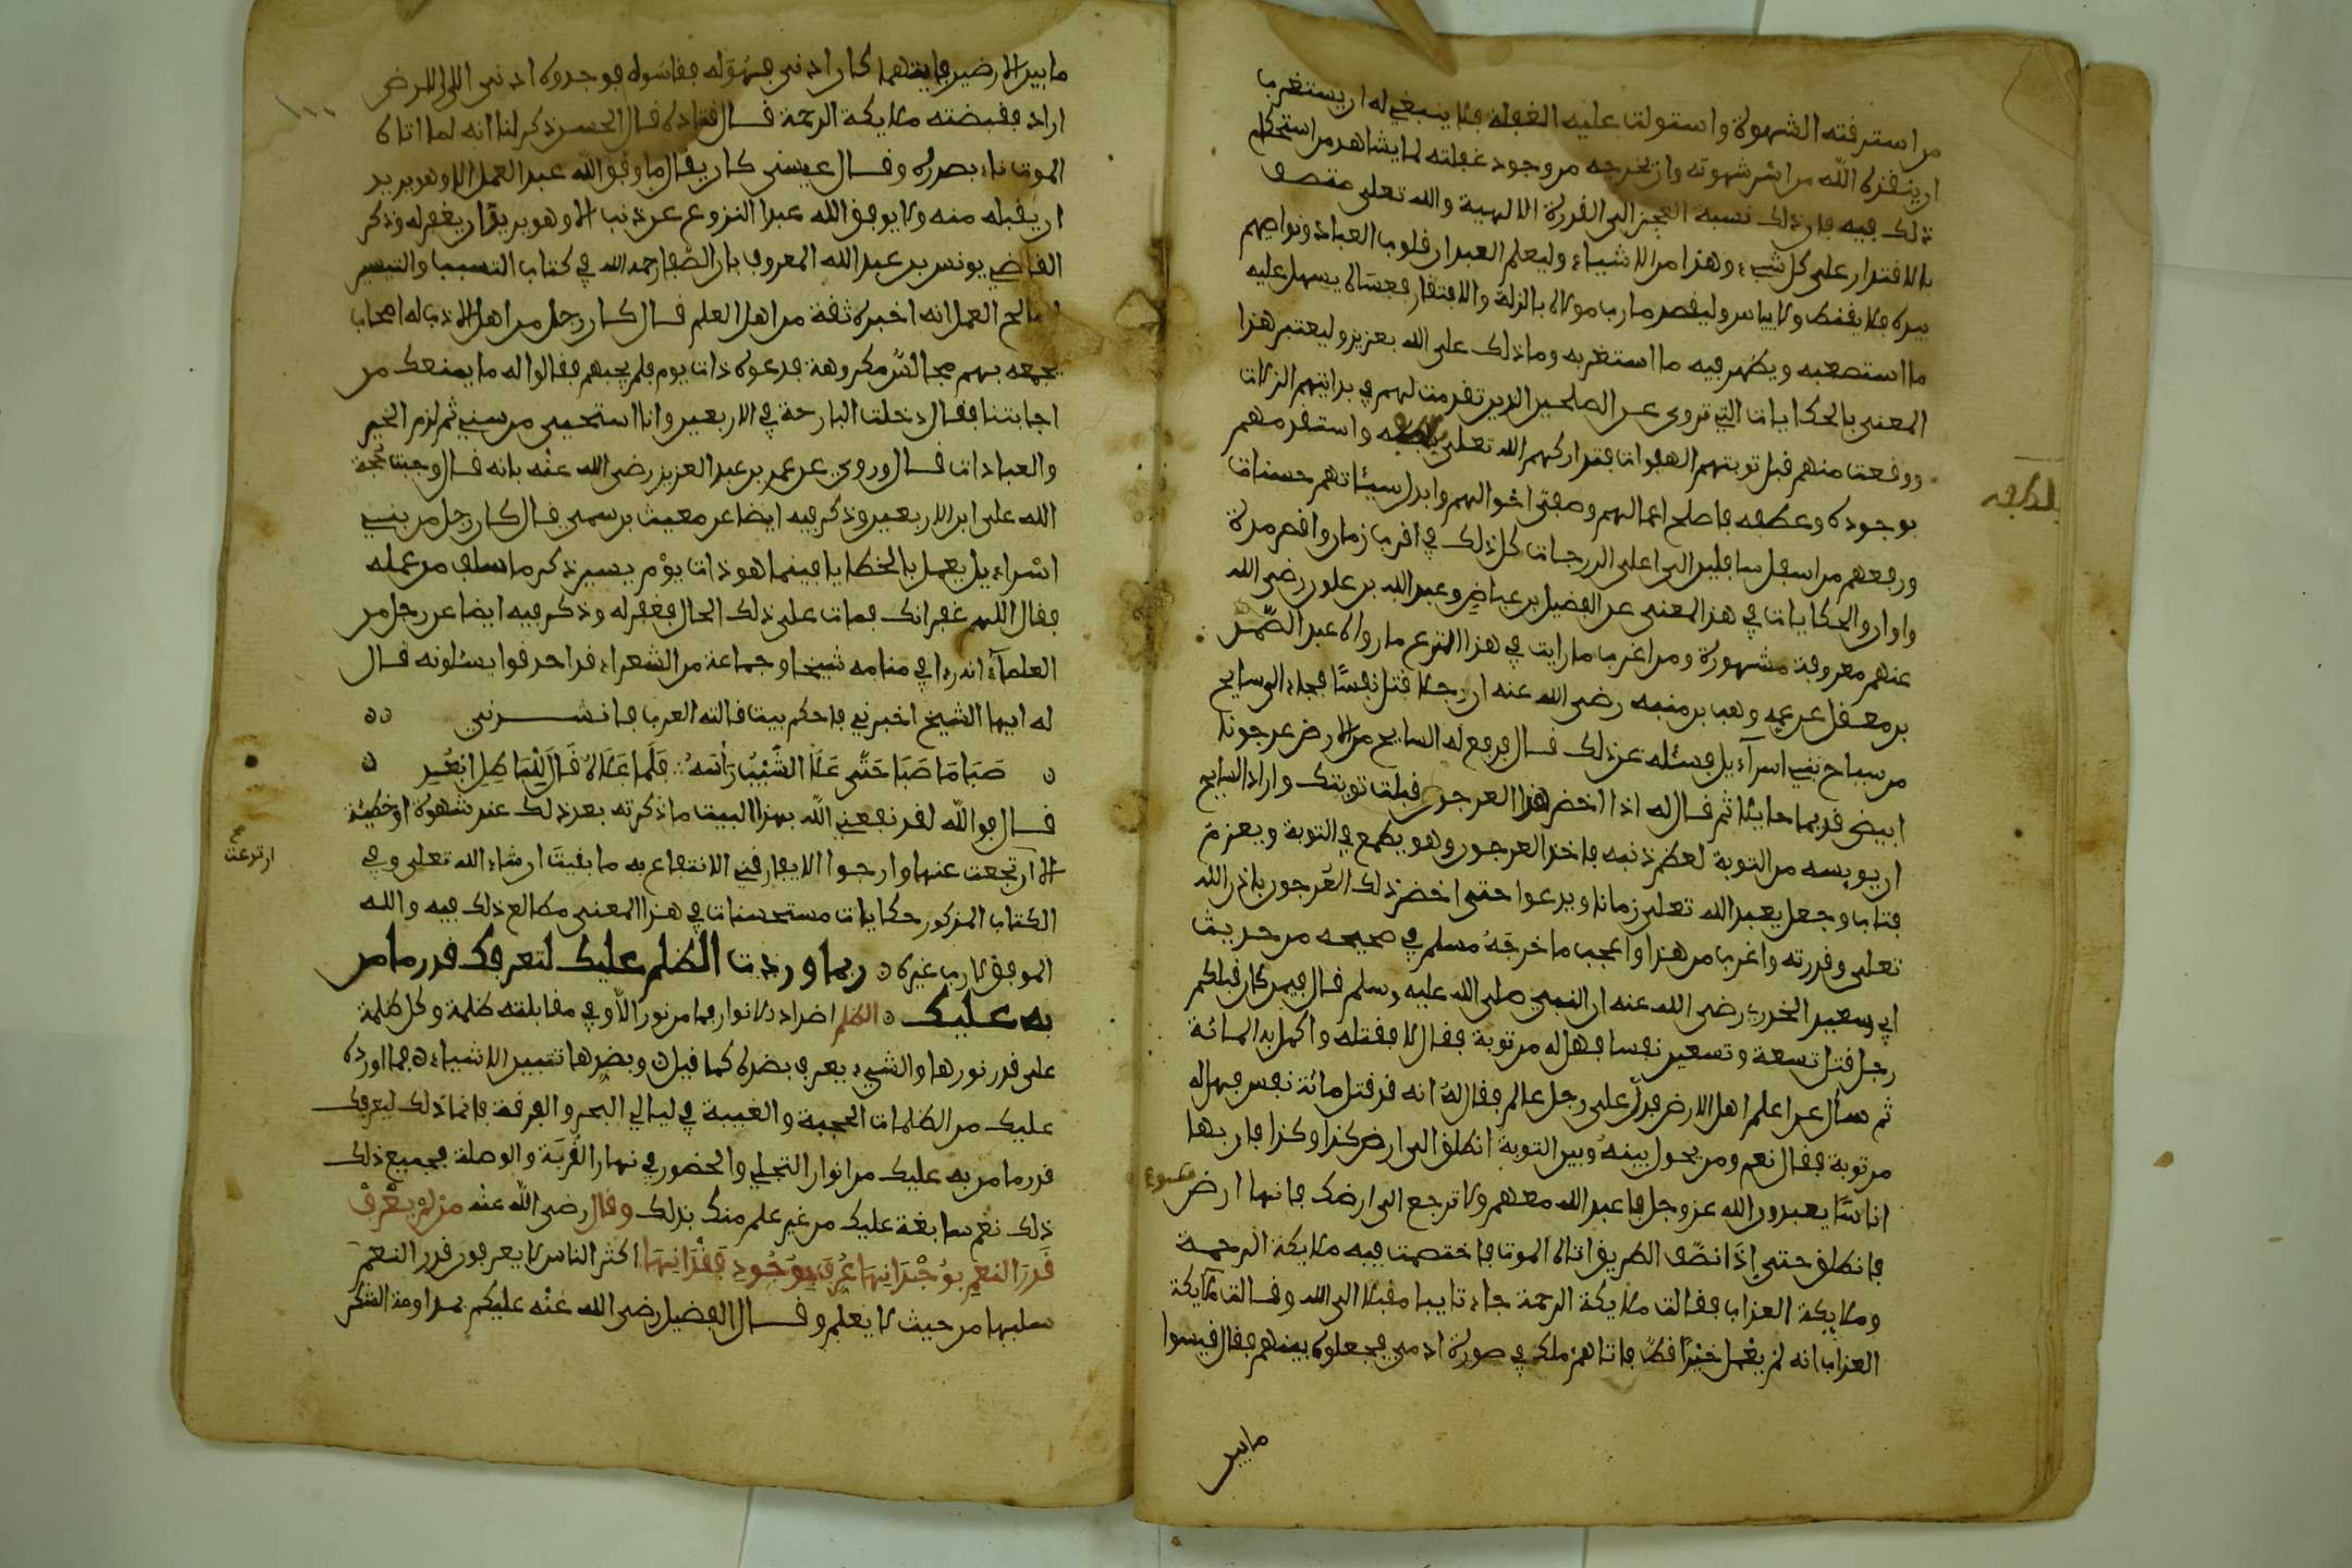 من استرقته الشهوة واستولت عليه الغفلة فلا ينبغي له ان يستغرب
ان ينقذه الله من اسر شهوته وان يخرجه من وجود غفلته لما يشاهد من استحكام
ذلك فيه فان ذلك نسبة العجز الى القدرة الالهية والله تعلى متصف
بالاقتدار على كل شيء وهذا من الاشياء وليعلم العبد ان قلوب العباد ونواصيهم
بيده فلا يقنط ولا يياس وليقصد باب مولاه بالذلة والافتقار فعساه يسهل عليه
ما استصعبه ويظهر فيه ما استغربه وما ذلك على الله بعزيز وليعتبر هذا
المعنى بالحكايات التي تروى عن الصلحين الذين تقدمت لهم في بدايتهم الزلات
ووقعت منهم قبل توبتهم الهفوات فتداركهم الله تعلى بلطفه واستنقذهم
بلطفه
بوجوده وعطفه فاصلح اعمالهم وصفى احوالهم وابدل سيئاتهم حسنات
ورفعهم من اسفل سافلين الى اعلى الدرجات كل ذلك في اقرب زمان واقصر مدة
واوان والحكايات في هذا المعنى عن الفضيل بن عياض وعبد الله بن علوان رضي الله
عنهم معروفة مشهورة ومن اغرب ما رايت في هذا النوع ما رواه عبد الصمد
بن معقل عن عمه وهب بن منبه رضي الله عنه ان رجلا قتل نفسا فجاء الى سايح
من سياح بني اسراءيل فسئله عن ذلك قال فرفع له السايح من الارض عرجونا
ابيض قديما حايلا ثم قال له اذا اخضر هذا العرجون قبلت توبتك واراد السايح
ان يويسه من التوبة لعظم ذنبه فاخذ العرجون وهو يطمع في التوبة ويعزم
فتاب وجعل يعبد الله تعلى زمانا ويدعوا حتى اخضر ذلك العرجون باذن الله
تعلى وقدرته واغرب من هذا واعجب ما خرجه مسلم في صحيحه من حديث
ابي سعيد الخدري رضي الله عنه ان النبي صلى الله عليه وسلم قال فيمن كان قبلكم
رجل قتل تسعة وتسعين نفسا فهل له من توبة فقال لا فقتله واكمل به المائة
ثم سأل عن اعلم اهل الارض فدل على رجل عالم فقال له انه قد قتل مائة نفس فهل له
من توبة فقال نعم ومن يحول بينه وبين التوبة انطلق الى ارض كذا وكذا فان بها
اناسا يعبدون الله عز وجل فاعبد الله معهم ولا ترجع الى ارضك فانها ارض سوء
فانطلق حتى اذا نصف الطريق اتاه الموت فاختصمت فيه ملايكة الرحمة
وملايكة العذاب فقالت ملايكة الرحمة جاء تايبا مقبلا الى الله وقالت ملايكة
العذاب انه لم يعمل خيرا قط فاتاهم ملك في صورة ادمي فجعلوه بينهم فقال قيسوا
ما بين
ما بين الارضين فايتهما كان ادنى فهو له فقاسوه فوجدوه ادنى الى الارض التي
اراد فقبضته ملايكة الرحمة قال قتادة قال الحسن ذكر لنا انه لما اتاه
الموت ناء بصدره وقال عيسى كان يقال ما وفق الله عبدا لعمل الا وهو يريد
ان يقبله منه ولا يوفق الله عبدا لنزوع عن ذنب الا وهو يريد ان يغفر له وذكر
القاضي يونس بن عبد الله المعروف بابن الصفار رحمه الله في كتاب التسبب والتيسير
لصالح العمل انه اخبره ثقة من اهل العلم قال كان رجل من اهل الادب له اصحاب
يجمعه بهم مجالس مكروهة فدعوه ذات يوم فلم يجبهم فقالوا له ما يمنعك من
اجابتنا فقال دخلت البارحة في الاربعين وانا استحيي من سني ثم لزم الخير
والعبادات قال وروي عن عمر بن عبد العزيز رضي الله عنه بانه قال وجبت حجة
الله على ابن الاربعين وذكر فيه ايضا عن مغيث بن سمي قال كان رجل من بني
اسراءيل يعمل بالخطايا فبينما هو ذات يوم يسير ذكر ما سلف من عمله
فقال اللهم غفرانك فمات على ذلك الحال فغفر له وذكر فيه ايضا عن رجل من
العلماء انه رءا في منامه شيخا وجماعة من الشعراء قد احدقوا يسئلونه قال
له ايها الشيخ اخبرني باحكم بيت قالته العرب فانشدني
صَبَا مَا صَبَا حَتَّى عَلَا الشَّيْبُ رَأْسَهُ فَلَمَّا عَلَاهُ قَالَ لِلْبَاطِلِ ابْعُدِ
قال فوالله لقد نفعني الله بهذا البيت ما ذكرته بعد ذلك عند شهوة او خطيئة
الا ارتجعت عنها وارجوا الا يفارقني الانتفاع به ما بقيت ان شاء الله تعلى وفي
ارتدعت
الكتاب المذكور حكايات مستحسنات في هذا المعنى طالع ذلك فيه والله
الموفق لا رب غيره ربما وردت الظلم عليك لتعرفك قدر ما من
به عليك الظلم اضداد الانوار فما من نور الا وفي مقابلته ظلمة وكل ظلمة
على قدر نورها والشيء يعرف بضده كما قيل وبضدها تتبين الاشياء فما اورده
عليك من الظلمات الحجبة والغيبة في ليالي الهجر والفرقة فانما ذلك ليعرفك
قدر ما من به عليك من انوار التجلي والحضور في نهار القربة والوصلة فجميع ذلك
ذلك نعم سابغة عليك من غير علم منك بذلك وقال رضي الله عنه من لم يعرف
قَدْرَ النعم بوُجْدَانِهَا عَرَفَ بوُجُودِ فِقْدَانِهَا اكثر الناس لا يعرفون قدر النعم
سلبها من حيث لا يعلم وقال الفضيل رضي الله عنه عليكم بمداومة الشكر